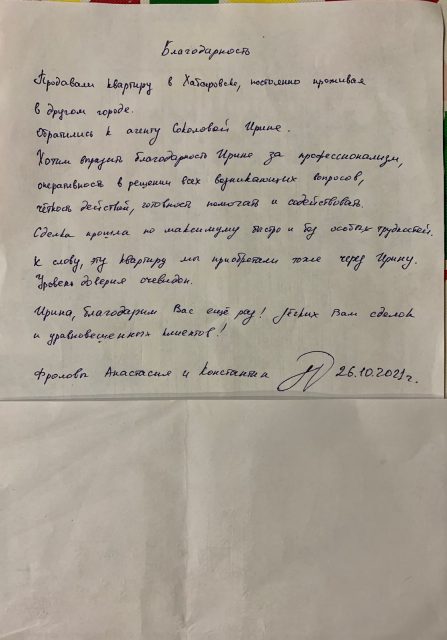 Благодарность
Продавали квартиру в Хабаровске, постоянно проживая
в другом городе.
Обратились к агенту Соколовой Ирине.
Хотим выразить благодарность Ирине за профессионализм,
оперативность в решении всех возникающих вопросов,
чёткость действий, готовность помогать и содействовать.
Сделка прошла по максимуму быстро и без особых трудностей.
К слову, эту квартиру мы приобретали тоже через Ирину.
Уровень доверия очевиден.
Ирина, благодарим Вас ещё раз! Лёгких Вам сделок
и уравновешенных клиентов!
Фроловы Анастасия и Константин 26.10.2021г.